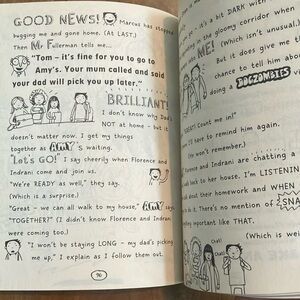 GOOD NEWS! Marcus has stopped
bugging me and gone home. (AT LAST.)
Then Mr Fullerman tells me...
"Tom - it's fine for you to go to
Amy's. Your mum called and said
your dad will pick you up later."
BRILLIANT!
I don't know why Dad's
NOT at home, but it
doesn't matter now. I get my things
together as AMY's waiting.
"Let's GO!" I say cheerily when Florence and
Indrani come and join us.
"We're READY as well," they say.
(Which is a surprise.)
"Great - we can all walk to my house," AMY says.
"TOGETHER?" (I didn't know Florence and Indrani
were coming too.)
"I won't be staying LONG - my dad's picking
me up," I explain as I follow them out.
96
it's a bit DARK with
the gloomy corridor when
ME!
(Which isn't unusual
But it does give me th
chance to tell him abou
doing a DOGZOMBIES
Count me in!"
have to remind him again.
won't remember.)
Florence and Indrani are chatting a
back to her house. I'm LISTENIN
about their homework and WHEN
There's no mention of SNA
anything important like THAT.
(Which is wei